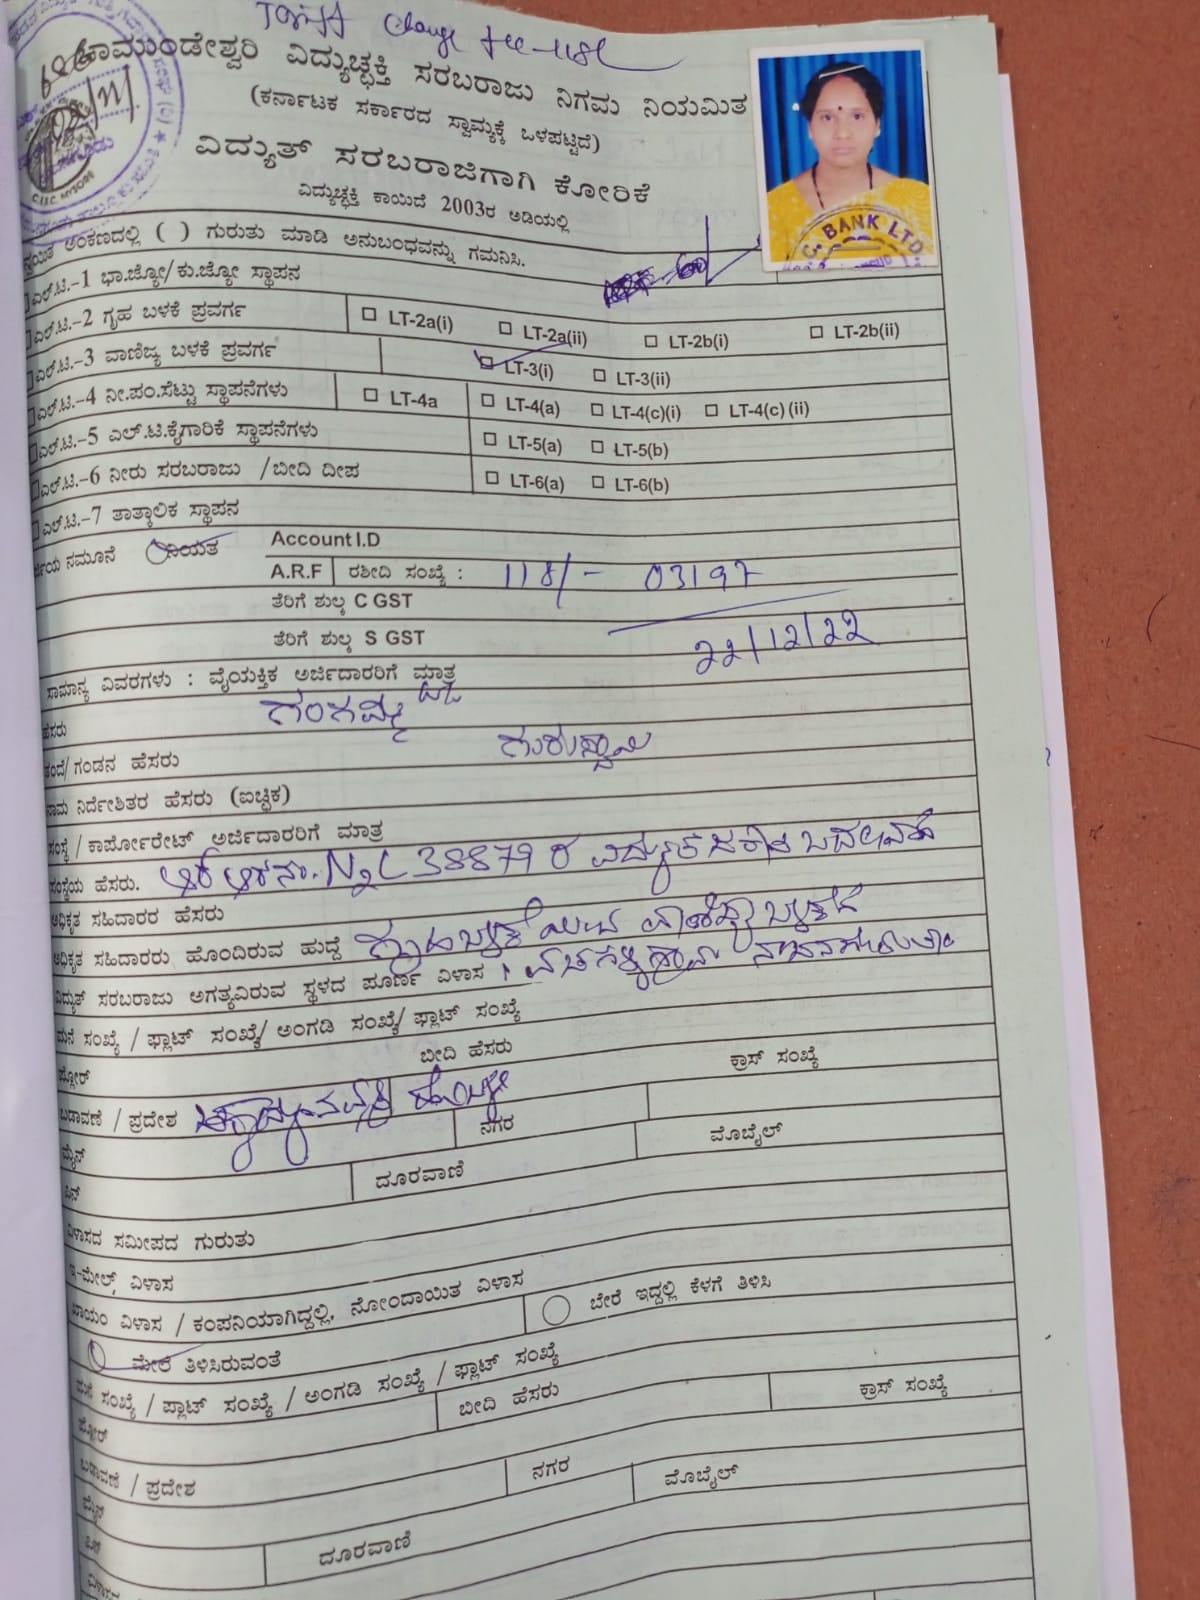 Tariff Change fee-118/-
ಚಾಮುಂಡೇಶ್ವರಿ ವಿದ್ಯುಚ್ಛಕ್ತಿ ಸರಬರಾಜು ನಿಗಮ ನಿಯಮಿತ
(ಕರ್ನಾಟಕ ಸರ್ಕಾರದ ಸ್ವಾಮ್ಯಕ್ಕೆ ಒಳಪಟ್ಟಿದೆ)
ವಿದ್ಯುತ್ ಸರಬರಾಜಿಗಾಗಿ ಕೋರಿಕೆ
ವಿದ್ಯುಚ್ಛಕ್ತಿ ಕಾಯಿದೆ 2003ರ ಅಡಿಯಲ್ಲಿ
BANK LTD
ಅಂಕಣದಲ್ಲಿ ( ) ಗುರುತು ಮಾಡಿ ಅನುಬಂಧವನ್ನು ಗಮನಿಸಿ.
ಎಲ್.ಟಿ.-1 ಭಾ.ಜ್ಯೋ/ಕು.ಜ್ಯೋ ಸ್ಥಾಪನ
ಎಲ್.ಟಿ.-2 ಗೃಹ ಬಳಕೆ ಪ್ರವರ್ಗ LT-2a(i) LT-2a(ii) LT-2b(i) LT-2b(ii)
ಎಲ್.ಟಿ.-3 ವಾಣಿಜ್ಯ ಬಳಕೆ ಪ್ರವರ್ಗ LT-3(i) LT-3(ii)
ಎಲ್.ಟಿ.-4 ನೀ.ಪಂ.ಸೆಟ್ಟು ಸ್ಥಾಪನೆಗಳು LT-4a LT-4(a) LT-4(c)(i) LT-4(c)(ii)
ಎಲ್.ಟಿ.-5 ಎಲ್.ಟಿ.ಕೈಗಾರಿಕೆ ಸ್ಥಾಪನೆಗಳು LT-5(a) LT-5(b)
ಎಲ್.ಟಿ.-6 ನೀರು ಸರಬರಾಜು /ಬೀದಿ ದೀಪ LT-6(a) LT-6(b)
ಎಲ್.ಟಿ.-7 ತಾತ್ಕಾಲಿಕ ಸ್ಥಾಪನ
ನಮೂನೆ ನಿಯತ Account I.D
A.R.F ರಶೀದಿ ಸಂಖ್ಯೆ : 118/- 03197
ತೆರಿಗೆ ಶುಲ್ಕ C GST
ತೆರಿಗೆ ಶುಲ್ಕ S GST 22/12/22
ಸಾಮಾನ್ಯ ವಿವರಗಳು : ವೈಯಕ್ತಿಕ ಅರ್ಜಿದಾರರಿಗೆ ಮಾತ್ರ
ಹೆಸರು ಗಂಗಮ್ಮ
ತಂದೆ/ಗಂಡನ ಹೆಸರು ಗುರುಸ್ವಾಮಿ
ನಾಮ ನಿರ್ದೇಶಿತರ ಹೆಸರು (ಐಚ್ಛಿಕ)
ಸಂಸ್ಥೆ / ಕಾರ್ಪೋರೇಟ್ ಅರ್ಜಿದಾರರಿಗೆ ಮಾತ್ರ
ಸಂಸ್ಥೆಯ ಹೆಸರು. ಆರ್ ಆರ್ ನಂ. 38879 ರ ವಿದ್ಯುತ್
ಅಧಿಕೃತ ಸಹಿದಾರರ ಹೆಸರು
ಅಧಿಕೃತ ಸಹಿದಾರರು ಹೊಂದಿರುವ ಹುದ್ದೆ ಗೃಹಬಳಕೆ ಯಿಂದ ವಾಣಿಜ್ಯ ಬಳಕೆಗೆ
ವಿದ್ಯುತ್ ಸರಬರಾಜು ಅಗತ್ಯವಿರುವ ಸ್ಥಳದ ಪೂರ್ಣ ವಿಳಾಸ :
ಮನೆ ಸಂಖ್ಯೆ / ಫ್ಲಾಟ್ ಸಂಖ್ಯೆ/ ಅಂಗಡಿ ಸಂಖ್ಯೆ/ ಫ್ಲಾಟ್ ಸಂಖ್ಯೆ
ಫ್ಲೋರ್ ಬೀದಿ ಹೆಸರು ಕ್ರಾಸ್ ಸಂಖ್ಯೆ
ಬಡಾವಣೆ / ಪ್ರದೇಶ
ಮೈನ್ ನಗರ ಮೊಬೈಲ್
ಪಿನ್ ದೂರವಾಣಿ
ವಿಳಾಸದ ಸಮೀಪದ ಗುರುತು
ಇ-ಮೇಲ್ ವಿಳಾಸ
ಖಾಯಂ ವಿಳಾಸ / ಕಂಪನಿಯಾಗಿದ್ದಲ್ಲಿ, ನೋಂದಾಯಿತ ವಿಳಾಸ
ಮೇಲೆ ತಿಳಿಸಿರುವಂತೆ ಬೇರೆ ಇದ್ದಲ್ಲಿ ಕೆಳಗೆ ತಿಳಿಸಿ
ಮನೆ ಸಂಖ್ಯೆ / ಪ್ಲಾಟ್ ಸಂಖ್ಯೆ / ಅಂಗಡಿ ಸಂಖ್ಯೆ / ಫ್ಲಾಟ್ ಸಂಖ್ಯೆ
ಫ್ಲೋರ್ ಬೀದಿ ಹೆಸರು ಕ್ರಾಸ್ ಸಂಖ್ಯೆ
ಬಡಾವಣೆ / ಪ್ರದೇಶ
ಮೈನ್ ನಗರ ಮೊಬೈಲ್
ಪಿನ್ ದೂರವಾಣಿ